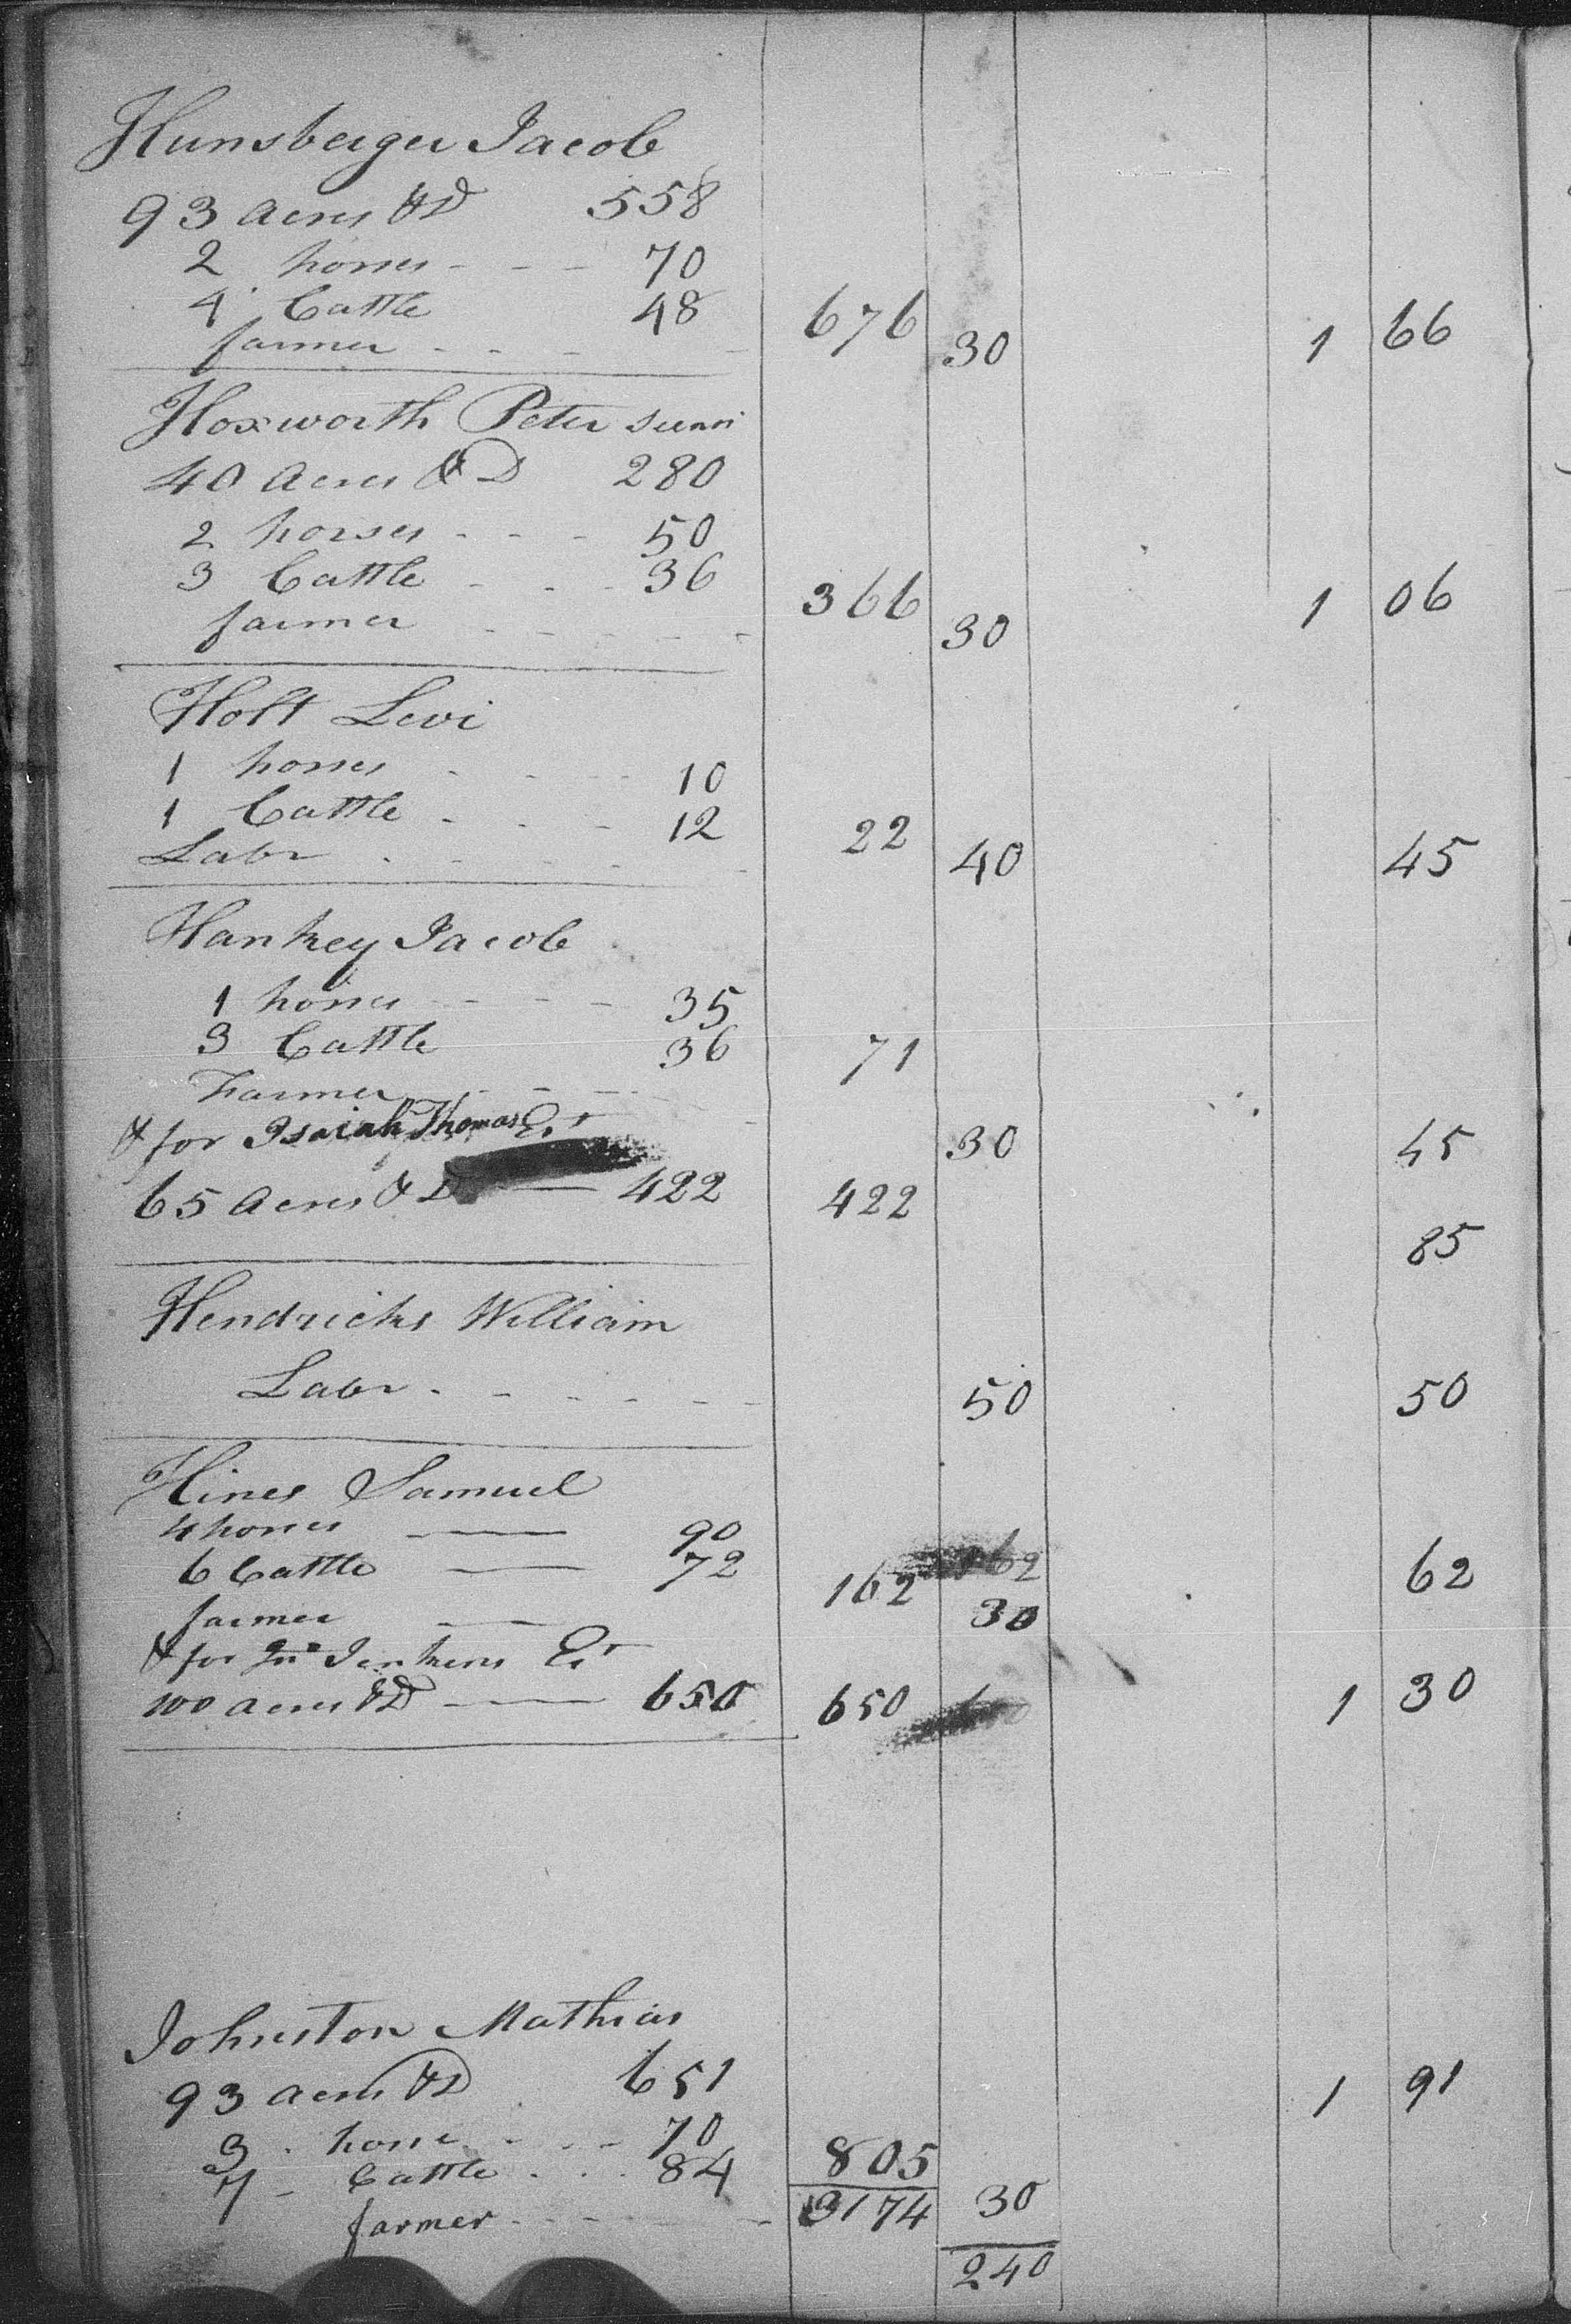 Hunsberger Jacob
93 Acres & D 558
2 horses - - - 70
4 Cattle 48 676
farmer - - - - 30 1 66
Hoxworth Peter
40 Acres & D 280
2 horses - - - 50
3 Cattle - - - 36 366 1 06
farmer - - - - - - 30
Holt Levi
1 horses - - - - 10
1 Cattle - - - 12 22
Labr - - - - - 40 45
Hankey Jacob
1 horses - - - 35
3 Cattle 36 71
Farmer - - -
& for Isaiah Thomas Est 30 45
65 Acres & D — 422 422
85
Hendricks William
Labr - - - - - - 50 50
Hines Samuel
4 horses — 90
6 Cattle — 72 162 62 62
farmer — 30
& for Jno Jenkens Est
100 acres & D — 650 650 1 30
Johnston Mathias
93 acres & D 651 1 91
3 - horse - - - 70
7 - Cattle - - - 84 805
farmer - - - - - - 3174 30
240